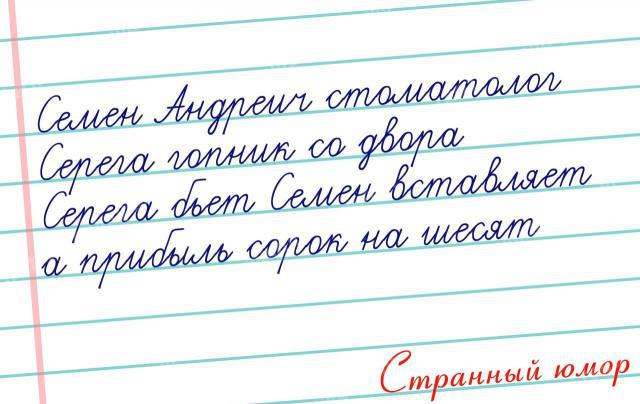 Семен Андреич стоматолог
Серега гопник со двора
Серега бьет Семен вставляет
а прибыль сорок на шесят
Странный юмор